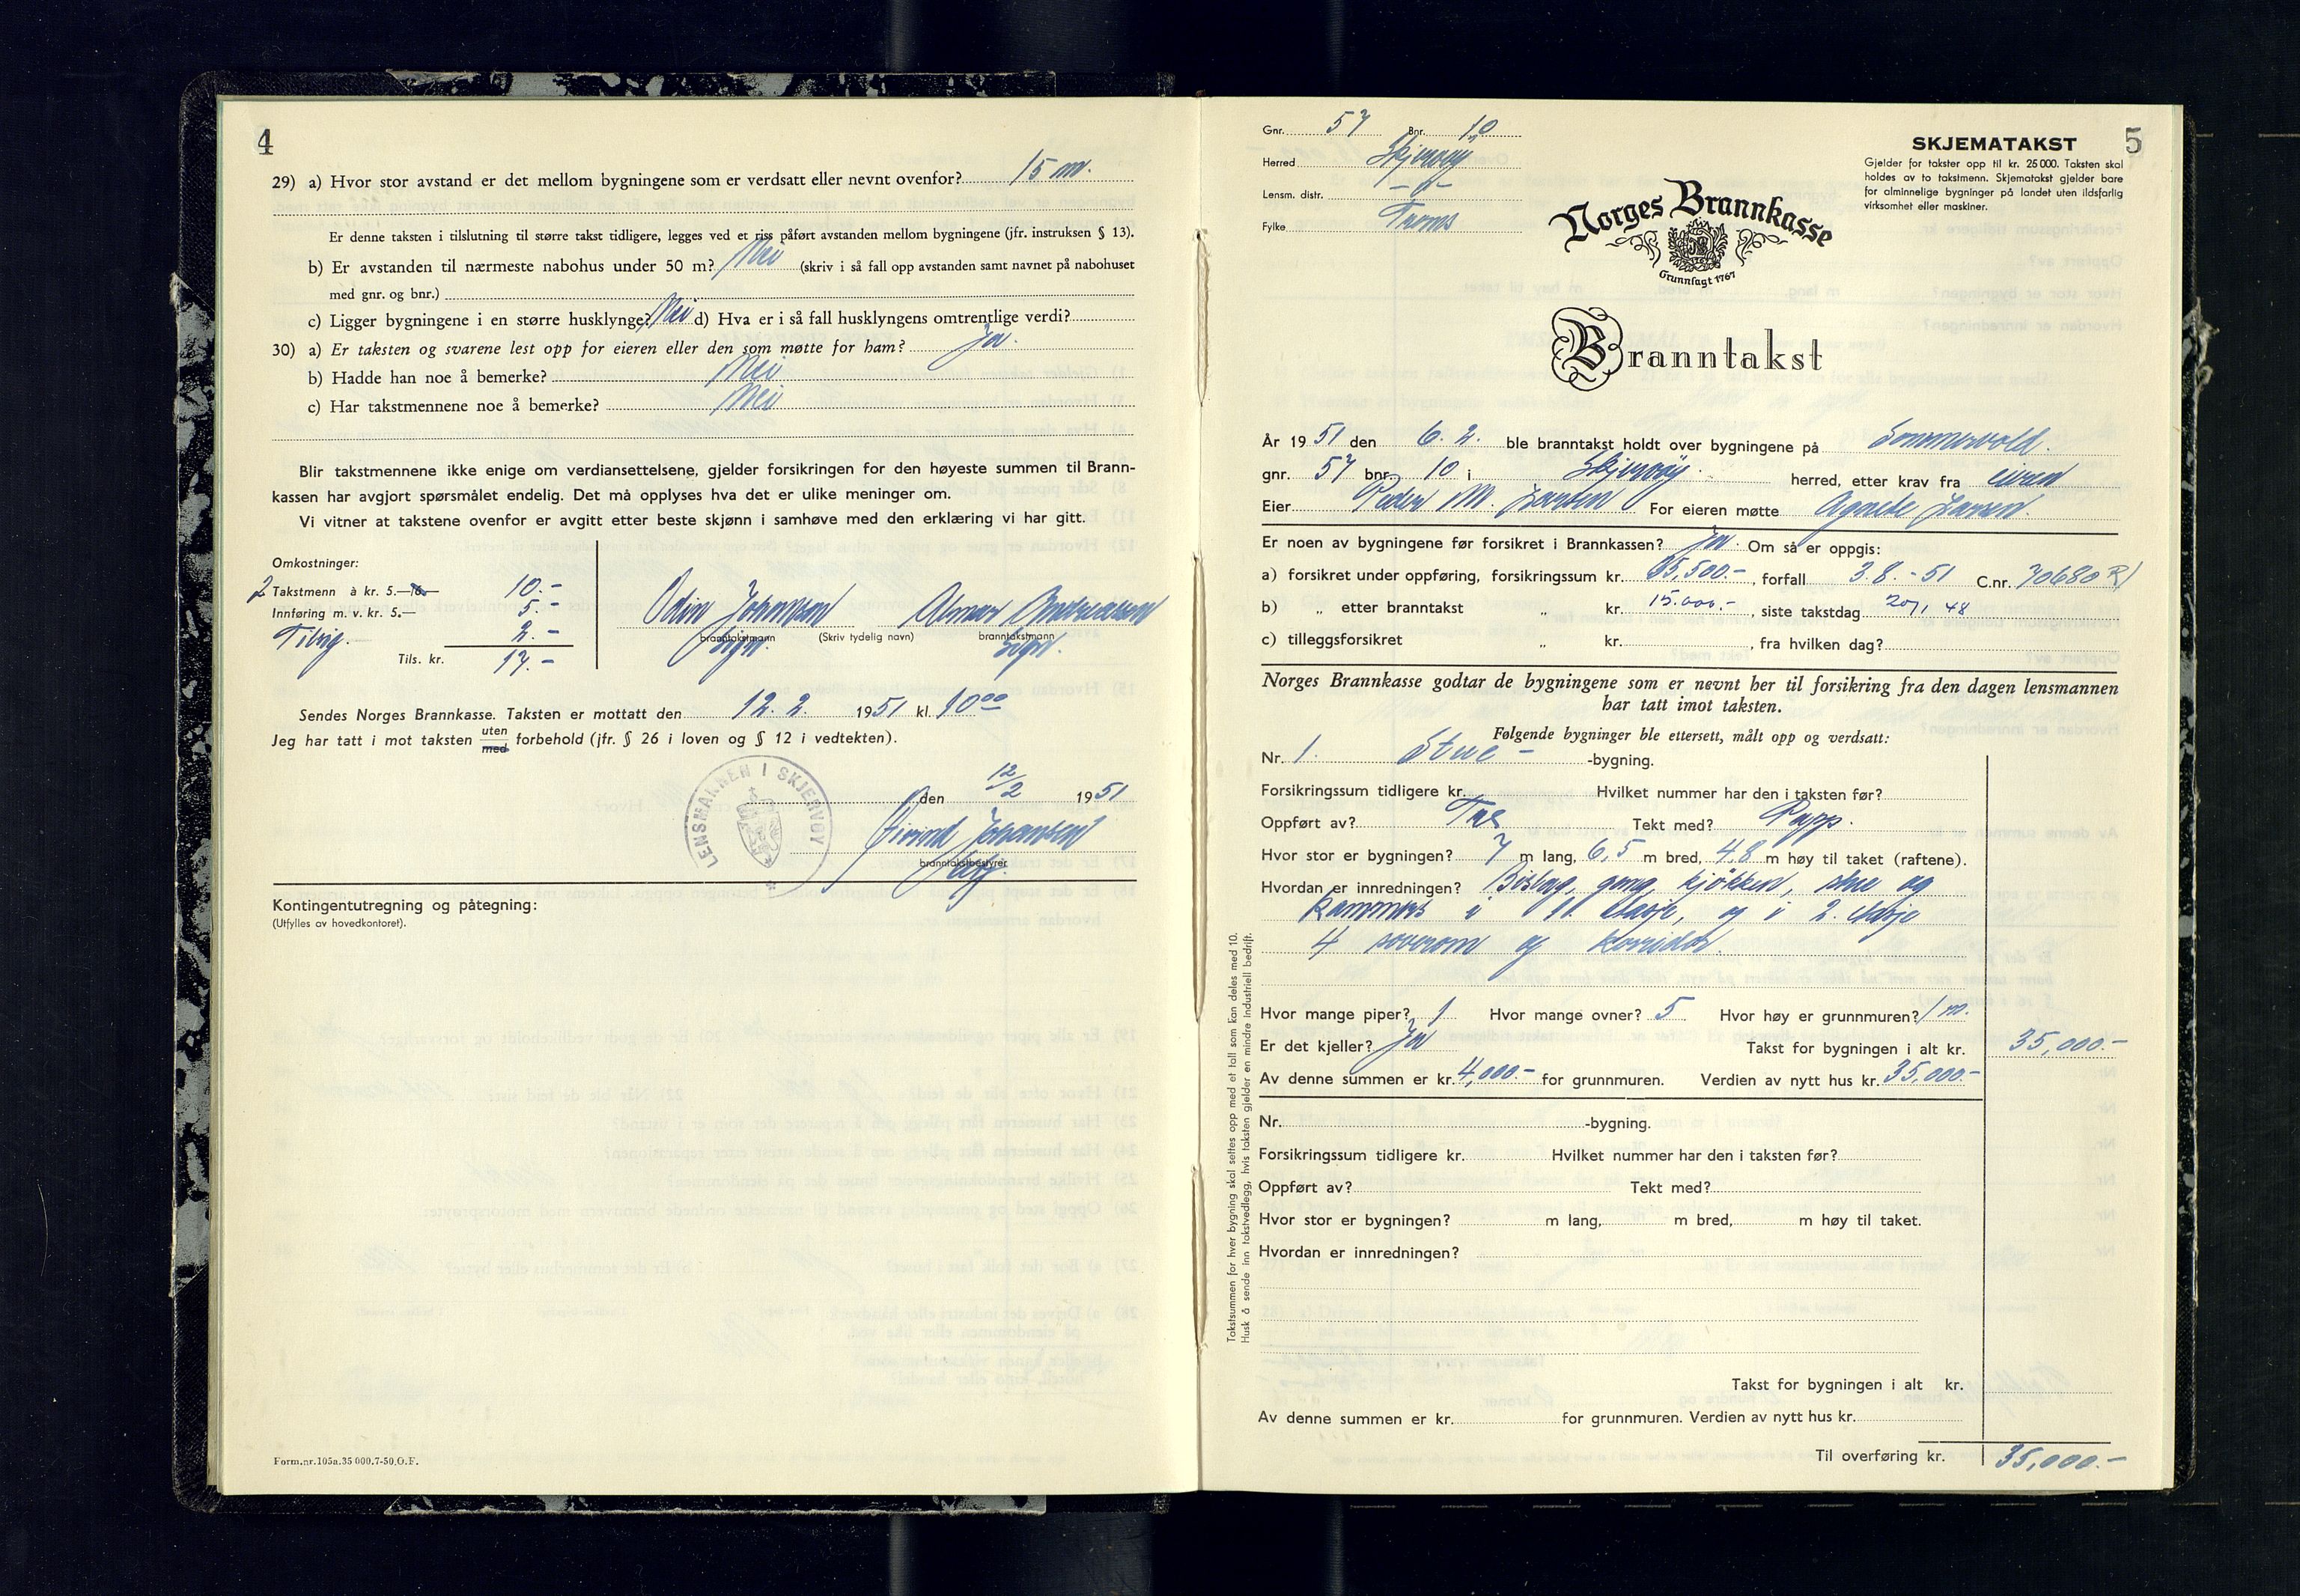 4
29) a) Hvor stor avstand er det mellom bygningene som er verdsatt eller nevnt ovenfor? 15 m.
Er denne taksten i tilslutning til større takst tidligere, legges ved et riss påført avstanden mellom bygningene (jfr. instruksen § 13).
b) Er avstanden til nærmeste nabohus under 50 m? Nei (skriv i så fall opp avstanden samt navnet på nabohuset
med gnr. og bnr.)
c) Ligger bygningene i en større husklynge? Nei d) Hva er i så fall husklyngens omtrentlige verdi?
30) a) Er taksten og svarene lest opp for eieren eller den som møtte for ham? Ja.
b) Hadde han noe å bemerke? Nei
c) Har takstmennene noe å bemerke? Nei
Blir takstmennene ikke enige om verdiansettelsene, gjelder forsikringen for den høyeste summen til Brann-
kassen har avgjort spørsmålet endelig. Det må opplyses hva det er ulike meninger om.
Vi vitner at takstene ovenfor er avgitt etter beste skjønn i samhøve med den erklæring vi har gitt.
Omkostninger:
2 Takstmenn à kr. 5.— 10.-
Innføring m. v. kr. 5.— 5.-
2.-
Tils. kr. 17.-
Odin Johansen Almar Andreassen
branntakstmann (Skriv tydelig navn) branntakstmann
sign. sign.
Sendes Norges Brannkasse. Taksten er mottatt den 12. 2. 1951 kl. 10⁰⁰
Jeg har tatt i mot taksten uten med forbehold (jfr. § 26 i loven og § 12 i vedtekten).
LENSMANNEN I SKJERVØY
den 12/2 1951
Øivind Johansen
branntakstbestyrer
Kontingentutregning og påtegning:
(Utfylles av hovedkontoret).
Form.nr.105a.35 000.7-50.O.F.
5
Gnr. 57 Bnr. 10
Herred Skjervøy
Lensm. distr. -"-
Fylke Troms
SKJEMATAKST
Gjelder for takster opp til kr. 25 000. Taksten skal
holdes av to takstmenn. Skjematakst gjelder bare
for alminnelige bygninger på landet uten ildsfarlig
virksomhet eller maskiner.
Norges Brannkasse
Grunnlagt 1767
Branntakst
År 1951 den 6. 2. ble branntakst holdt over bygningene på Sommervold.
gnr. 57 bnr. 10 i Skjervøy. herred, etter krav fra eieren
Eier Peder M. Larsen For eieren møtte Agnete Larsen.
Er noen av bygningene før forsikret i Brannkassen? Ja. Om så er oppgis:
a) forsikret under oppføring, forsikringssum kr. 35,500.-, forfall 3.8.-51 C.nr. 70680 R/
b) „ etter branntakst „ kr. 15.000.-, siste takstdag 20/1 48
c) tilleggsforsikret „ kr. , fra hvilken dag?
Norges Brannkasse godtar de bygningene som er nevnt her til forsikring fra den dagen lensmannen
har tatt imot taksten.
Følgende bygninger ble ettersett, målt opp og verdsatt:
Nr. 1. Stue - -bygning.
Forsikringssum tidligere kr. Hvilket nummer har den i taksten før?
Oppført av? Tre Tekt med? Papp.
Hvor stor er bygningen? 7 m lang, 6,5 m bred, 4.8 m høy til taket (raftene).
Hvordan er innredningen? Bislag, gang, kjøkken, stue og
kammers i 1. etasje, og i 2. etasje
4 soverom og korridor.
Hvor mange piper? 1 Hvor mange ovner? 5 Hvor høy er grunnmuren? 1 m.
Er det kjeller? Ja Takst for bygningen i alt kr. 35,000.-
Av denne summen er kr. 4,000.- for grunnmuren. Verdien av nytt hus kr. 35.000.-
Nr. -bygning.
Forsikringssum tidligere kr. Hvilket nummer har den i taksten før?
Oppført av? Tekt med?
Hvor stor er bygningen? m lang, m bred, m høy til taket.
Hvordan er innredningen?
Takst for bygningen i alt kr.
Av denne summen er kr. for grunnmuren. Verdien av nytt hus kr.
Til overføring kr. 35,000.-
Takstsummen for hver bygning skal settes opp med et tall som kan deles med 10.
Husk å sende inn takstvedlegg, hvis taksten gjelder en mindre industriell bedrift.